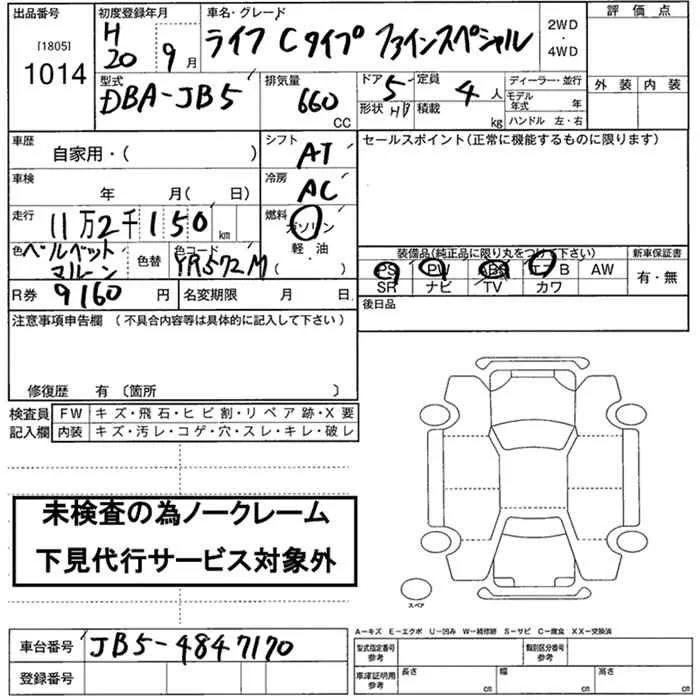 出品番号 初度登録年月 車名・グレード 評価点
[1805] H ライフ Cタイプ ファインスペシャル 2WD
1014 20 9月 ・4WD
型式 排気量 ドア 定員 ディーラー・並行 外装 内装
DBA-JB5 660 5 4人 モデル年式 年
CC 形状 HB 積載 kg ハンドル 左・右
車歴 シフト セールスポイント(正常に機能するものに限ります)
自家用・( ) AT
車検 冷房
年 月( 日) AC
走行 燃料
11万2千150km ガソリン
色 色コード 軽・油
ベルベット
マルーン 色替 YR572M ( )
装備品(純正品に限り丸をつけて下さい) 新車保証書
PS PW ABS エアB AW 有・無
SR ナビ TV カワ
R券 9160円 名変期限 月 日 後日品
注意事項申告欄 (不具合内容等は具体的に記入して下さい)
修復歴 有 〔箇所 〕
検査員 FW キズ・飛石・ヒビ割・リペア跡・X要
記入欄 内装 キズ・汚レ・コゲ・穴・スレ・キレ・破レ
未検査の為ノークレーム
下見代行サービス対象外
スペア
A-キズ E-エクボ U-凹み W-補修跡 S-サビ C-腐食 XX-交換済
車台番号 JB5-4847170 型式指定番号 参考 類別区分番号 参考
登録番号 車庫証明用 参考 長さ cm 幅 cm 高さ cm